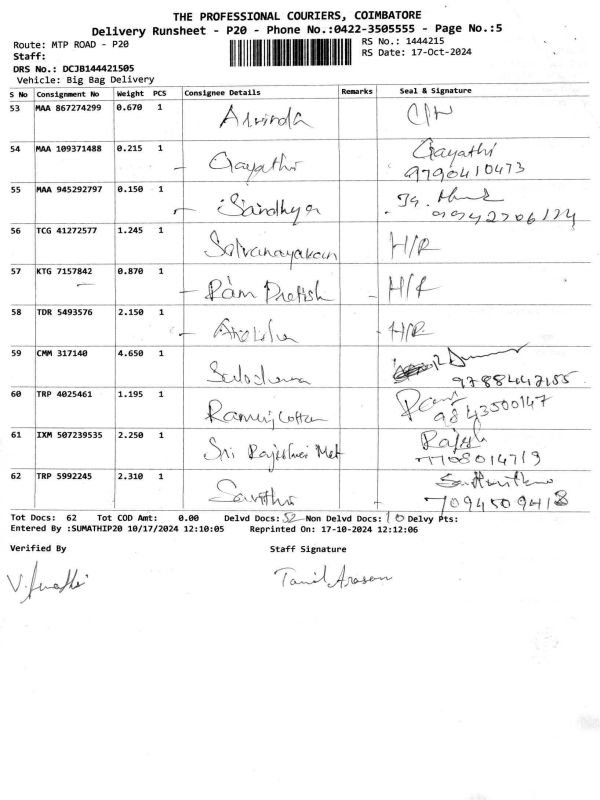 THE PROFESSIONAL COURIERS, COIMBATORE
Delivery Runsheet - P20 - Phone No.:0422-3505555 - Page No.:5
Route: MTP ROAD - P20 RS No.: 1444215
Staff: RS Date: 17-Oct-2024
DRS No.: DCJB144421505
Vehicle: Big Bag Delivery
S No Consignment No Weight PCS Consignee Details Remarks Seal & Signature
53 MAA 867274299 0.670 1 Arvinda
54 MAA 109371488 0.215 1 Gayathri Gayathri
9790410473
55 MAA 945292797 0.150 1 Sandhya
56 TCG 41272577 1.245 1 H/R
57 KTG 7157842 0.870 1 Ram Pretish H/R
58 TDR 5493576 2.150 1 H/R
59 CMM 317140 4.650 1
60 TRP 4025461 1.195 1 Ramraj Cotton
9843500147
61 IXM 507239535 2.250 1 Sri Rajeshwari Met Rajesh
62 TRP 5992245 2.310 1 Savithri
7094509418
Tot Docs: 62 Tot COD Amt: 0.00 Delvd Docs: 52 Non Delvd Docs: 10 Delvy Pts:
Entered By :SUMATHIP20 10/17/2024 12:10:05 Reprinted On: 17-10-2024 12:12:06
Verified By Staff Signature
Tamil Arasan